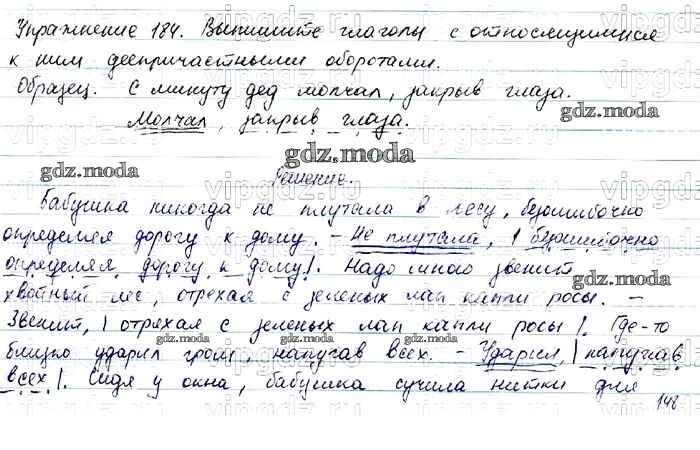 Упражнение 184. Выпишите глаголы с относящимися
к ним деепричастными оборотами.
Образец. С минуту дед молчал, закрыв глаза.
Молчал, закрыв глаза.
gdz.moda
gdz.moda
gdz.moda
Решение.
Бабушка никогда не плутала в лесу, безошибочно
определяя дорогу к дому. – Не плутала, | безошибочно
определяя дорогу к дому|. Надо мною звенит
хвойный лес, отрехая с зеленых лап капли росы. –
Звенит, | отряхая с зеленых лап капли росы |. Где-то
близко ударил гром, напугав всех. – Ударил, | напугав
всех|. Сидя у окна, бабушка сучила нитки для
148